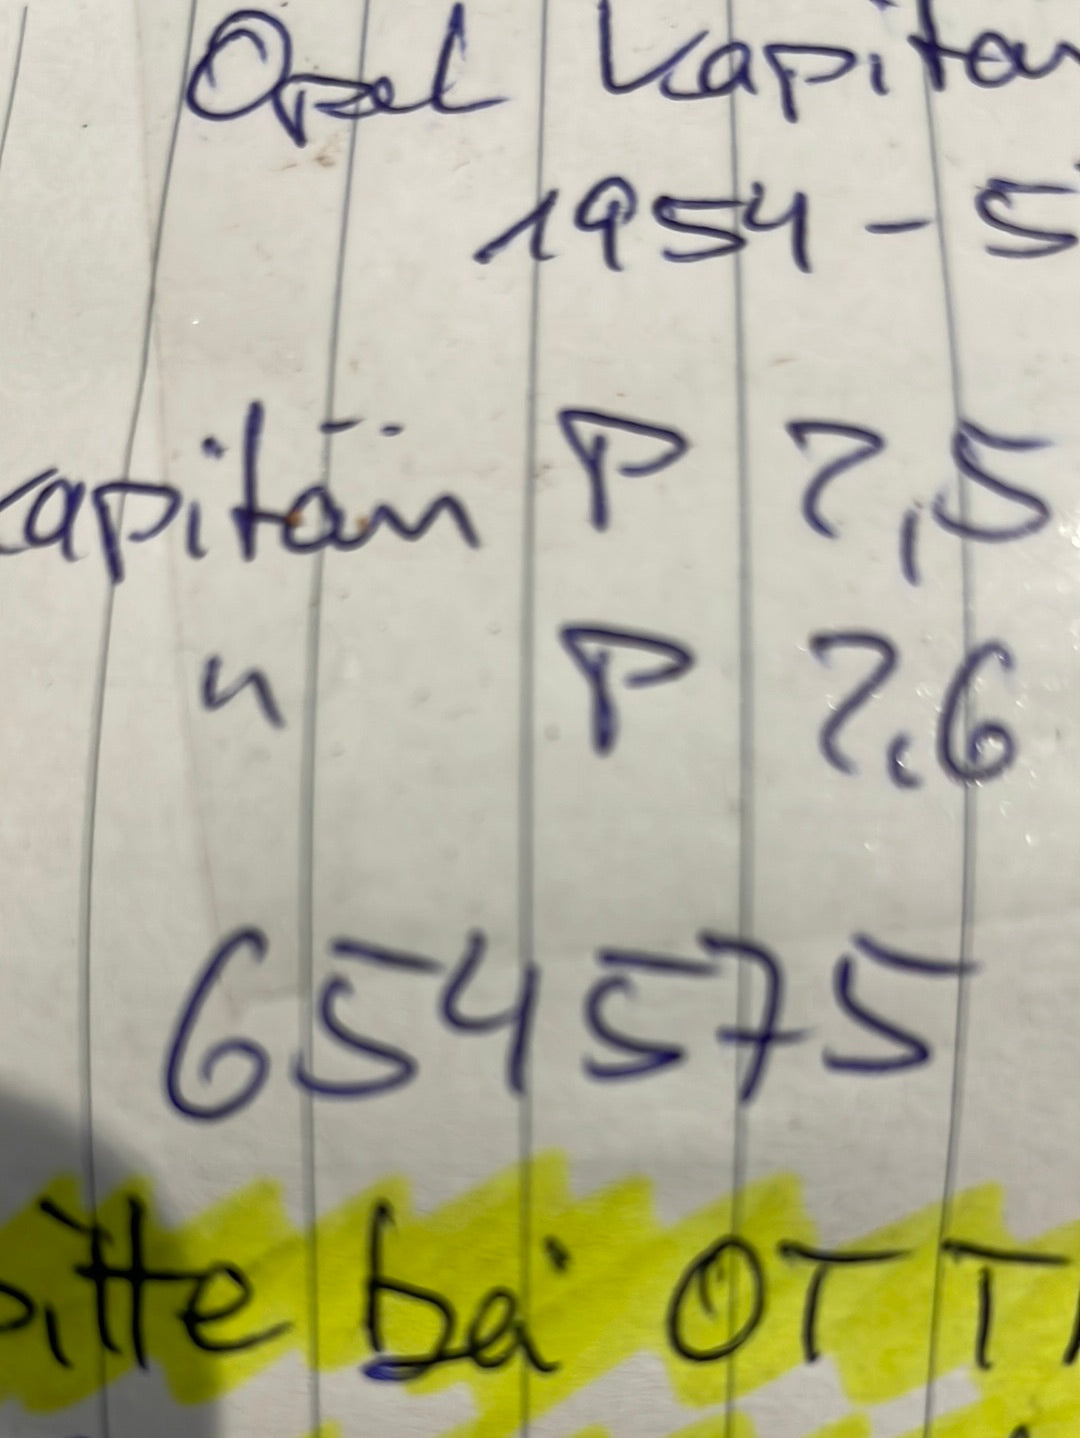 Opel Kapitän
1954 - 5
Kapitän P 2,5
" P 2,6
654575
bitte bei OTT